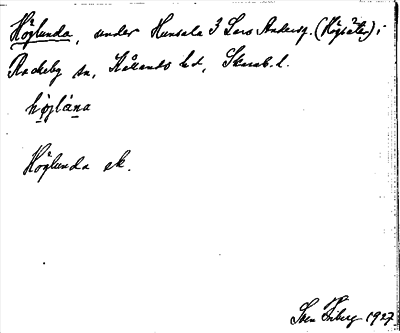 Höglunda, under Hunsala 3 Lars Andersg. (Högsäter) i
Rackeby sn, Kållands hd, Skarab. l.
höglåna
Höglunda ek.
Sven Friberg 1927